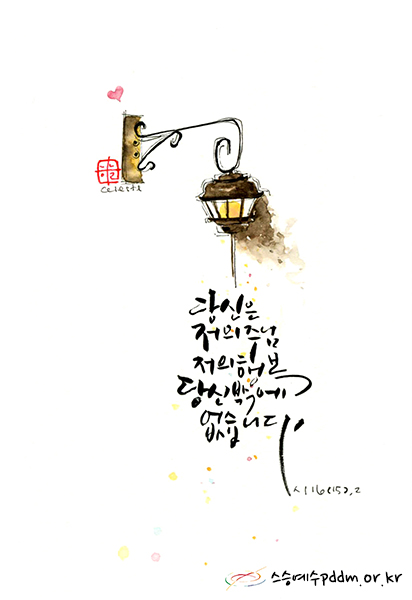 celeste
당신은
저의 주님
저의 행복
당신밖에
없습니다
시 16(15),2
스승예수pddm.or.kr